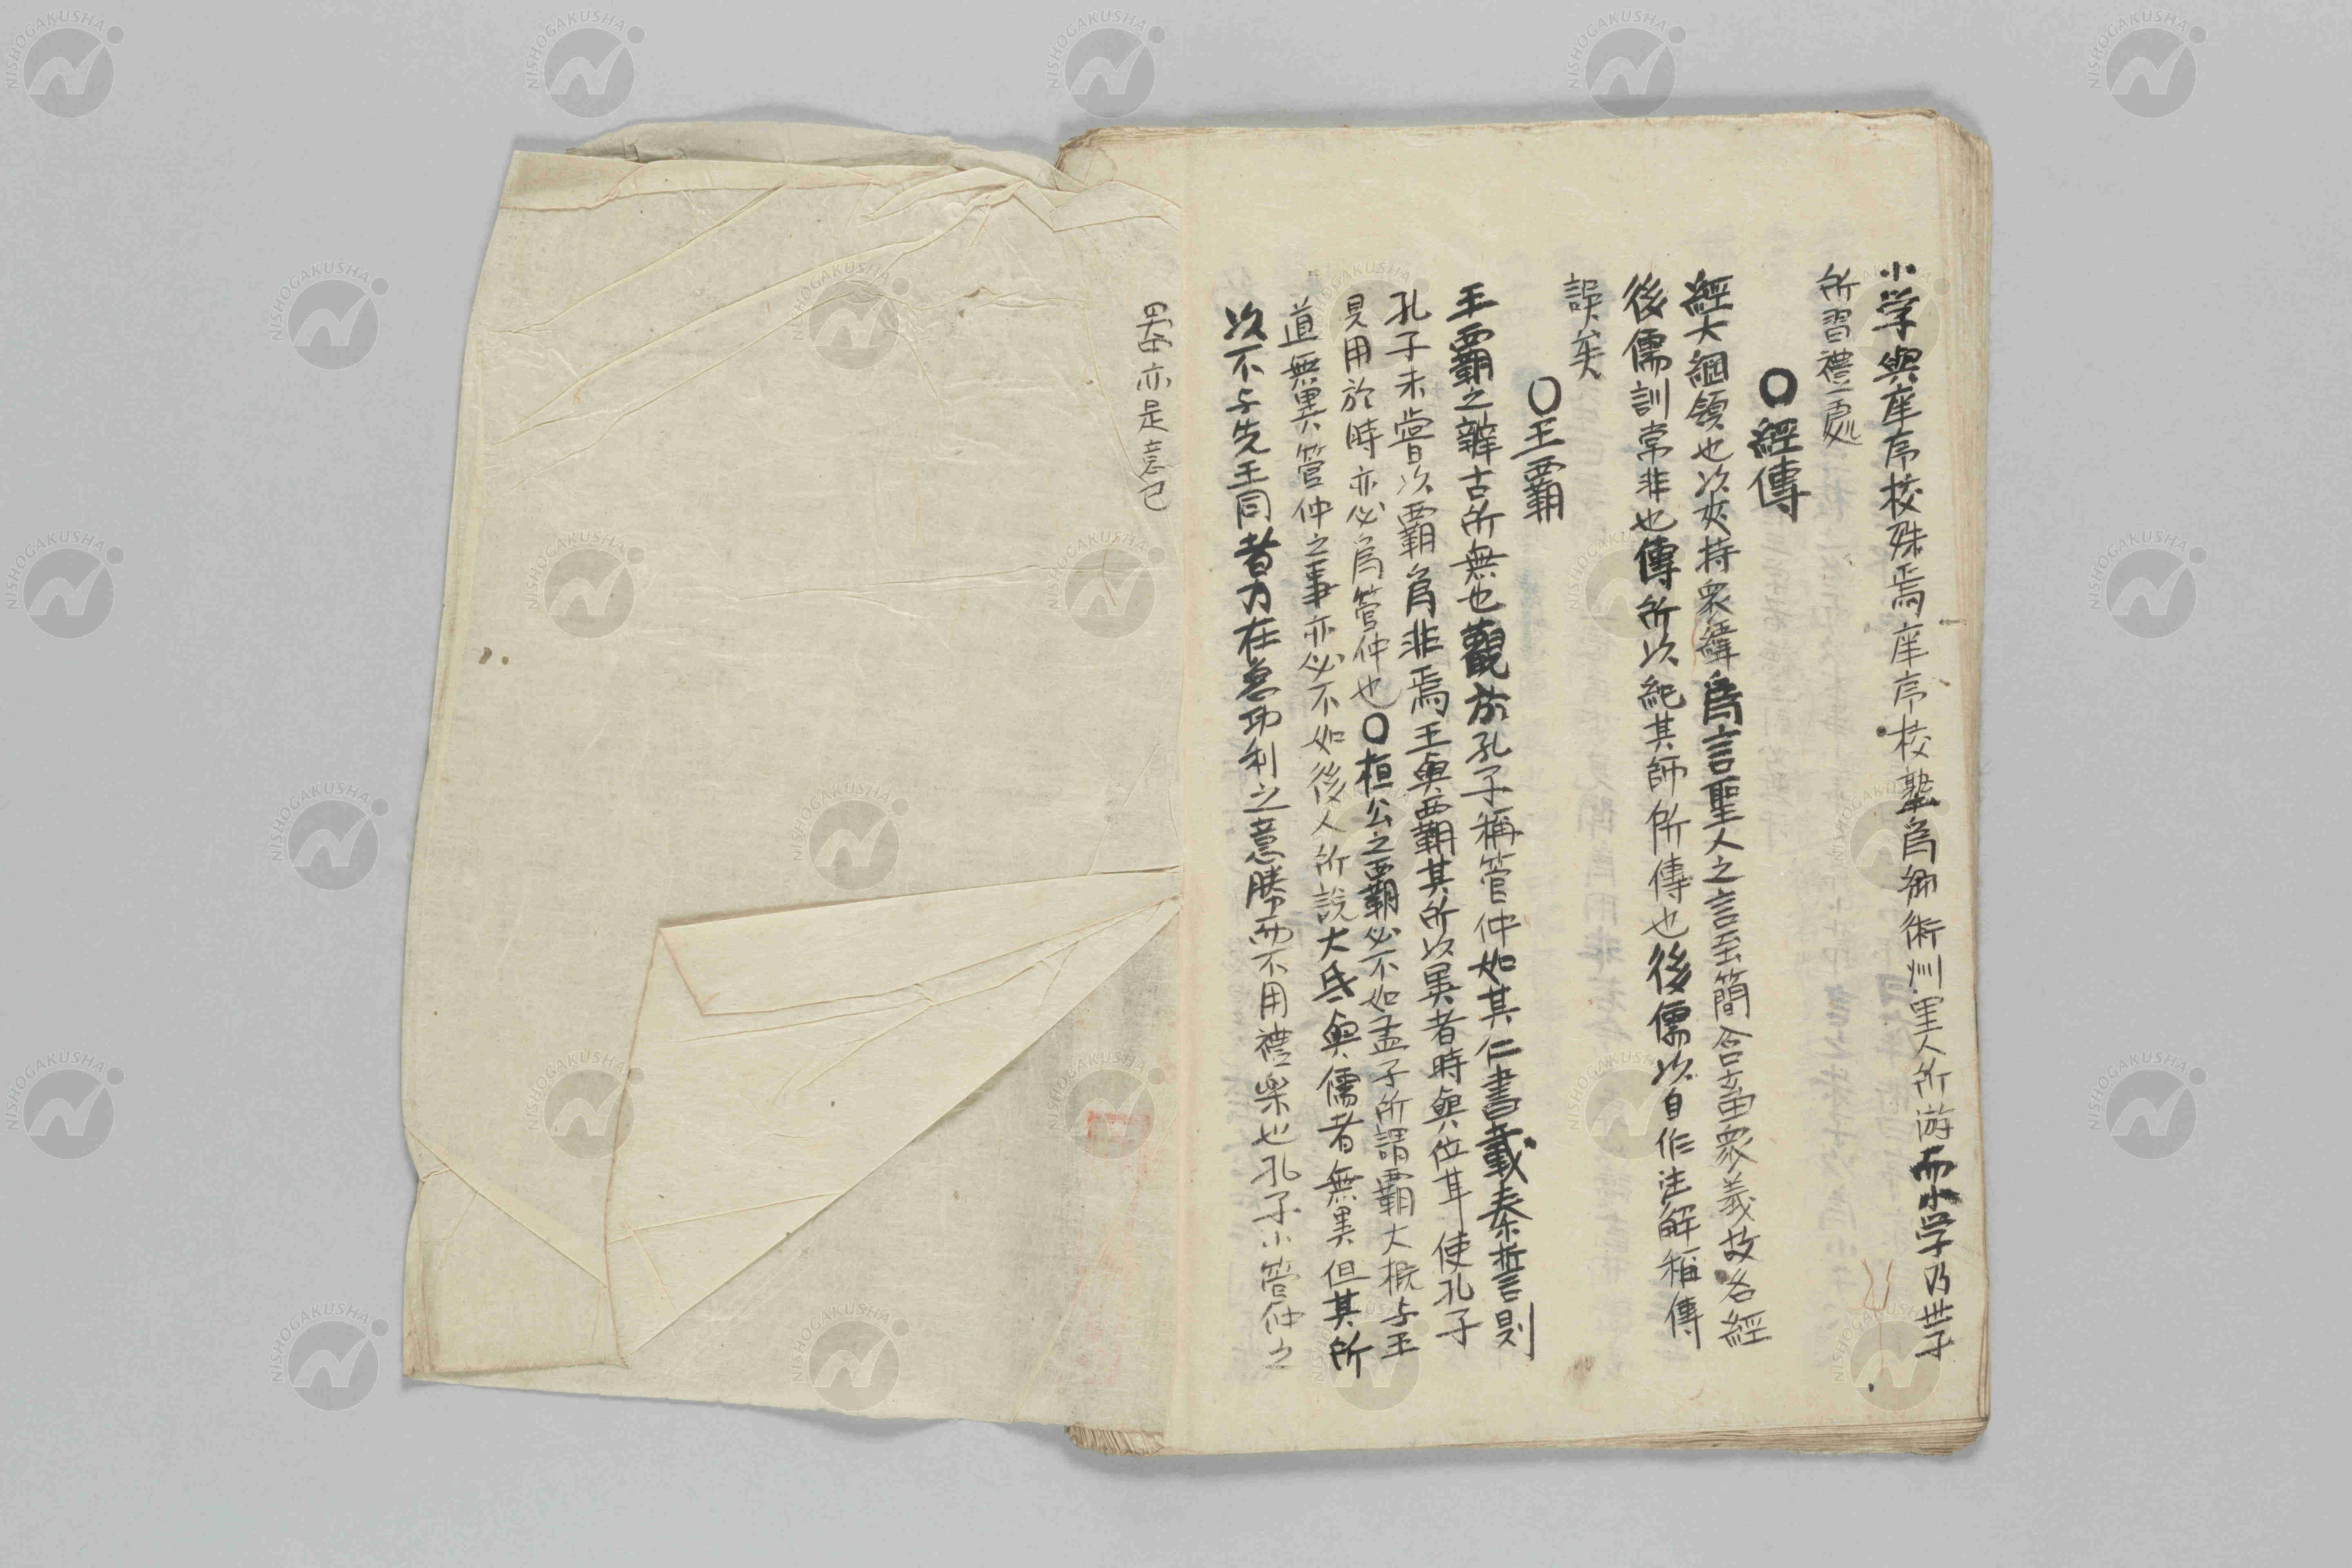 小学與庠序校殊焉庠序校塾爲鄉術州里人所游而小学乃世子
所習禮處
〇經傳
經大綱領也以夾持衆緯爲言聖人之言至簡含畜衆義故名經
後儒訓常非也傳所以紀其師所傳也後儒以自作注解稱傳
誤矣
〇王霸
王霸之辨古所無也觀於孔子稱管仲如其仁書載秦誓則
孔子未嘗以霸爲非焉王與霸其所以異者時與位耳使孔子
見用於時亦必爲管仲也〇桓公之霸必不如孟子所謂霸大概与王
道無異管仲之事亦必不如後人所說大氐與儒者無異但其所
以不与先王同者力在急功利之意勝而不用禮樂也孔子小管仲之
器亦是意已
NISHOGAKUSHA